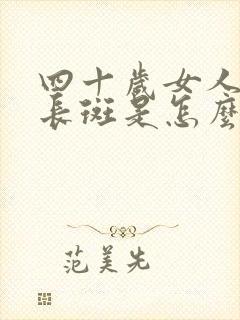 四十歲女人
長斑是怎麼
范美先